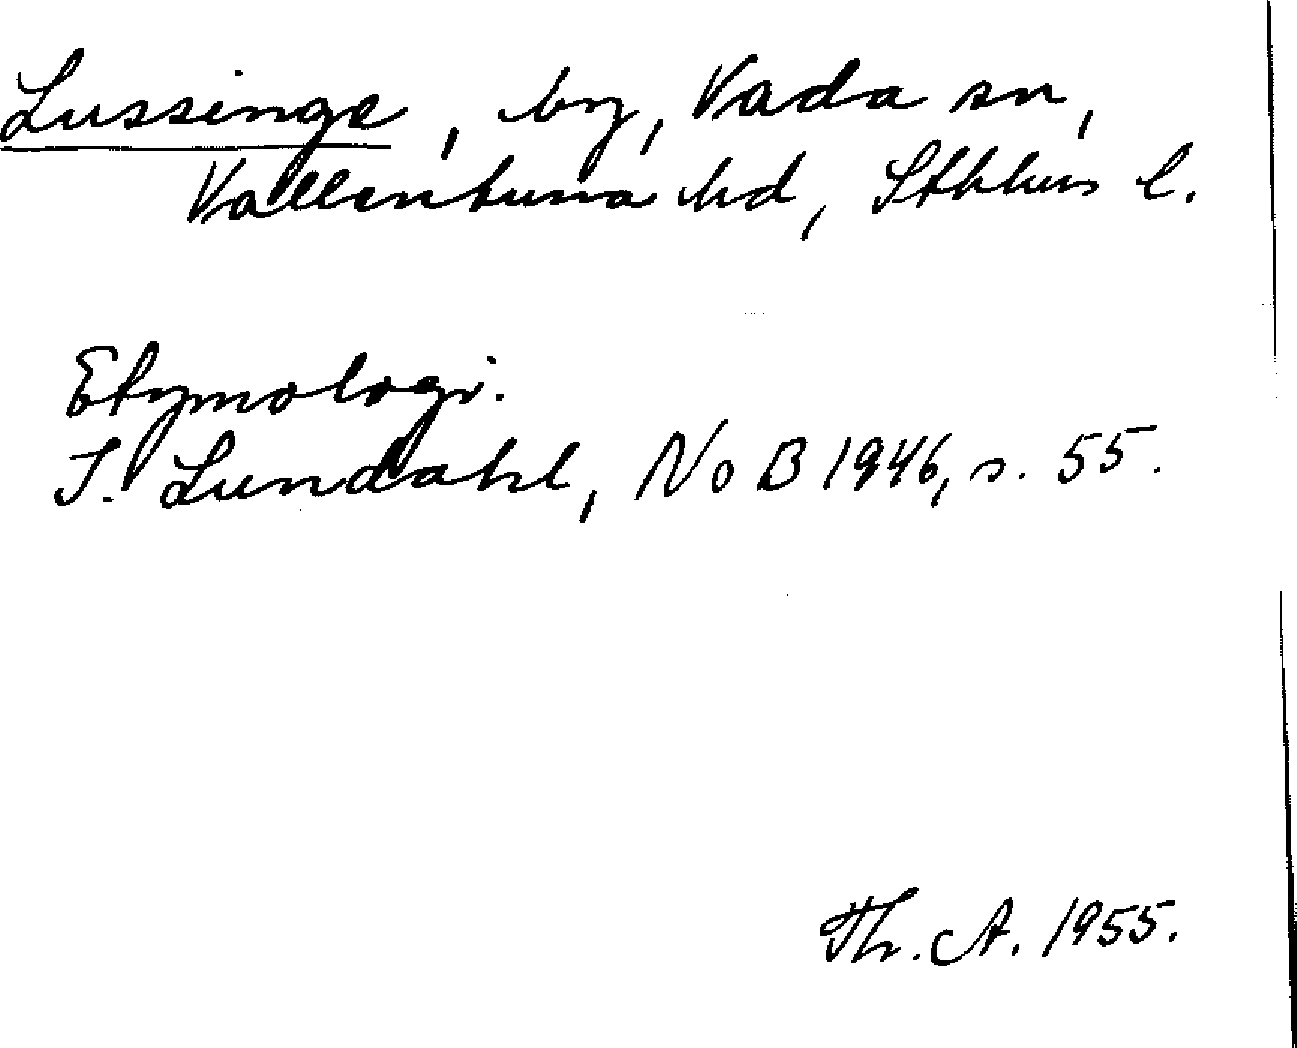 Lussinge, by, Vada sn,
Vallentuna hd, Sthlms l.
Etymologi.
I. Lundahl, NoB 1946, s. 55.
Th. A. 1955.